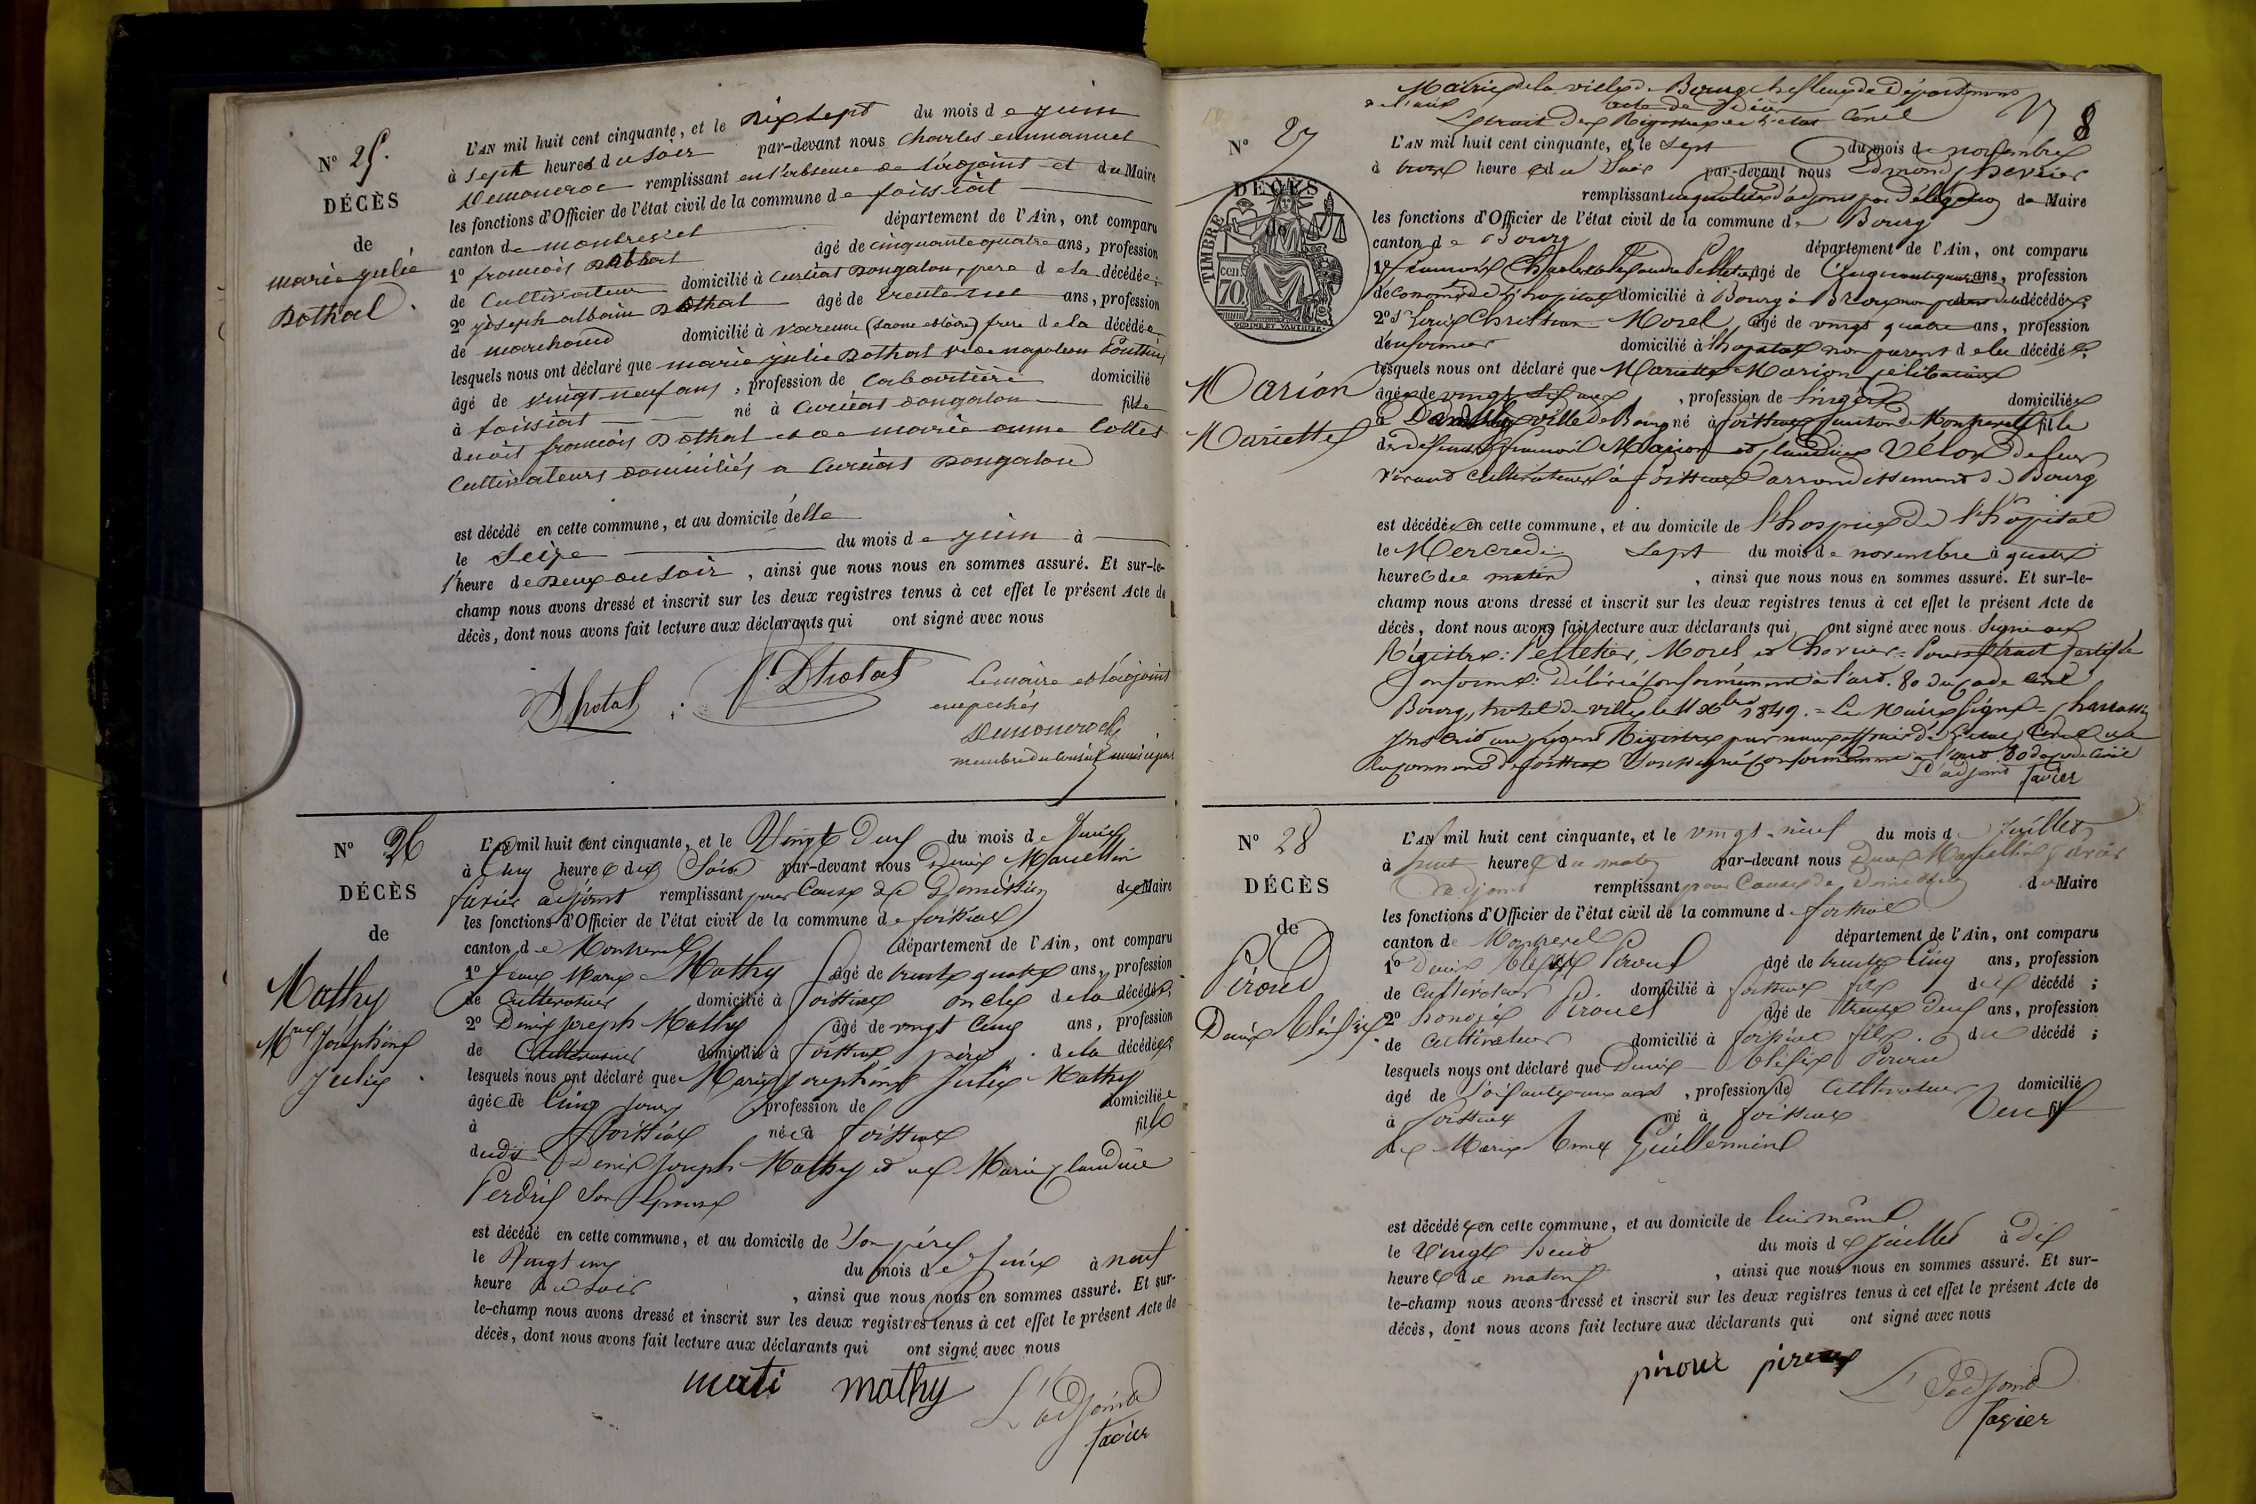 N° 25.
DÉCÈS
de
marie julie
Dothal.
L'AN mil huit cent cinquante, et le dix sept du mois de juin
à sept heures du soir par-devant nous Charles emmanuel
remplissant en l'absence de l'adjoint et du Maire
les fonctions d'Officier de l'état civil de la commune de foissiat
canton de montrevel département de l'Ain, ont comparu
1° francois Dothal âgé de cinquante quatre ans, profession
de Cultivateur domicilié à Curciat Dongalon, pere de la décédée;
2° joseph albain Dothal âgé de trente ans, profession
de marchand domicilié à varenne (Saone et Loire) frere de la décédée
lesquels nous ont déclaré que marie julie Dothal napoleon
âgé de vingt neuf ans, profession de Cabaretière domicilié
à foissiat né à Curciat Dongalon fille
francois Dothal et de marie anne Collet
Cultivateurs domiciliés a Curciat Dongalon
est décédé en cette commune, et au domicile d'elle
le Seize du mois de juin à
l'heure de Deux du soir, ainsi que nous nous en sommes assuré. Et sur-le-
champ nous avons dressé et inscrit sur les deux registres tenus à cet effet le présent Acte de
décès, dont nous avons fait lecture aux déclarants qui ont signé avec nous
Le maire et l'adjoint
empechés
membre du Conseil municipal
N° 26
DÉCÈS
de
Mathy
Josephine
Julie.
L'AN mil huit cent cinquante, et le Vingt Deux du mois de Juin
à Cinq heures du Soir par-devant nous Denis Marcellin
favier adjoint remplissant pour Cause de Demission de Maire
les fonctions d'Officier de l'état civil de la commune de foissiat
canton de Montrevel département de l'Ain, ont comparu
1° Marie Mathy âgé de trente quatre ans, profession
de Cultivateur domicilié à foissiat oncle de la décédée;
2° Denis Joseph Mathy âgé de vingt Cinq ans, profession
de Cultivateur domicilié à foissiat père de la décédée;
lesquels nous ont déclaré que Marie Josephine Julie Mathy
âgée de Cinq jours profession de domiciliée
à foissiat née à foissiat fille
dudit Denis Joseph Mathy et de Marie Claudine
Perdrix Son Epouse
est décédé en cette commune, et au domicile de Son père
le Vingt un du mois de Juin à neuf
heure du soir, ainsi que nous nous en sommes assuré. Et sur-
le-champ nous avons dressé et inscrit sur les deux registres tenus à cet effet le présent Acte de
décès, dont nous avons fait lecture aux déclarants qui ont signé avec nous
mati mathy L'adjoint
favier
8
Mairie de la ville de Bourg chef lieu de Département
de l'ain acte de décès
Extrait des Registres de l'etat Civil
N° 27
DÉCÈS
de
TIMBRE
70 cen
Marion
Mariette
L'AN mil huit cent cinquante, et le Sept du mois de novembre
à trois heure du soir par-devant nous Edmond
remplissant en qualité d'adjoint par Délégation de Maire
les fonctions d'Officier de l'état civil de la commune de Bourg
canton de Bourg département de l'Ain, ont comparu
1° françois Charles Pelletier âgé de Cinquante quatre ans, profession
d'économe de l'hopital domicilié à Bourg non parent de la décédée;
2° Louis Christian Morel âgé de vingt quatre ans, profession
d'infirmier domicilié à l'hopital non parent de la décédée;
lesquels nous ont déclaré que Mariette Marion célibataire
âgée de vingt six ans, profession de lingère domiciliée
à ville de Bourg né à foissiat Canton de Montrevel fille
de défunt françois Marion et Claudine Vélon
cultivateurs à foissiat arrondissement de Bourg
est décédée en cette commune, et au domicile de l'hospice de l'hopital
le Mercredi Sept du mois de novembre à quatre
heures du matin, ainsi que nous nous en sommes assuré. Et sur-le-
champ nous avons dressé et inscrit sur les deux registres tenus à cet effet le présent Acte de
décès, dont nous avons fait lecture aux déclarants qui ont signé avec nous. Signé au
Registre: Pelletier, Morel et Chevrier. Pour Extrait Certifié
Conforme: Délivré Conformément à l'art. 80 du Code Civil
Bourg, hotel de ville, le 11 Xbre 1849. = Le Maire Signé =
Inscrit au présent Registre par nous officier de l'etat Civil de
la commune de foissiat Conformément a l'art. 80 du Code Civil
L'adjoint favier
N° 28
DÉCÈS
de
Piroud
Denis Alexis.
L'AN mil huit cent cinquante, et le vingt-neuf du mois de Juillet
à huit heures du matin par-devant nous Denis Marcellin favier
adjoint remplissant pour Cause de Demission de Maire
les fonctions d'Officier de l'état civil de la commune de foissiat
canton de Montrevel département de l'Ain, ont comparu
1° Denis Alexis Piroud âgé de trente Cinq ans, profession
de Cultivateur domicilié à foissiat fils du décédé;
2° honoré Piroud âgé de trente Deux ans, profession
de Cultivateur domicilié à foissiat fils du décédé;
lesquels nous ont déclaré que Denis Alexis Piroud
âgé de Soixante ans, profession de Cultivateur domicilié
à foissiat né à foissiat Veuf
de Marie Anne Guillermin
est décédé en cette commune, et au domicile de lui même
le Vingt huit du mois de Juillet à Dix
heures du matin, ainsi que nous nous en sommes assuré. Et sur-
le-champ nous avons dressé et inscrit sur les deux registres tenus à cet effet le présent Acte de
décès, dont nous avons fait lecture aux déclarants qui ont signé avec nous
piroud piroud L'adjoint
favier